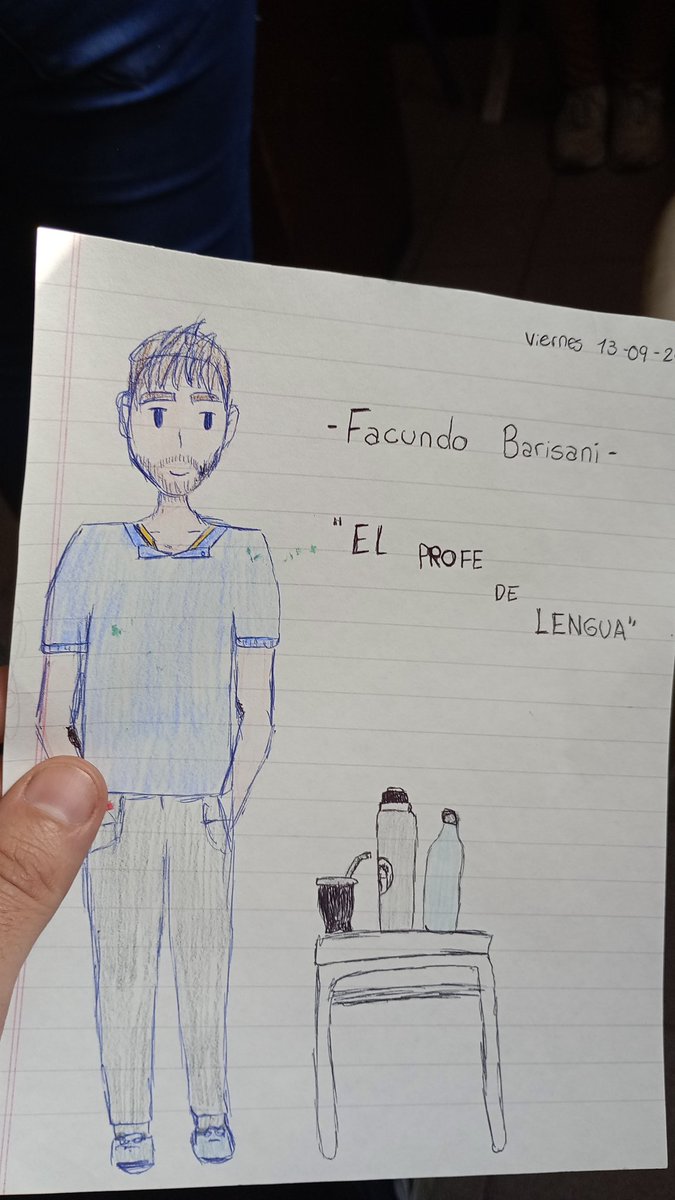 viernes 13-09-2
-Facundo Barisani-
"EL PROFE
DE
LENGUA"